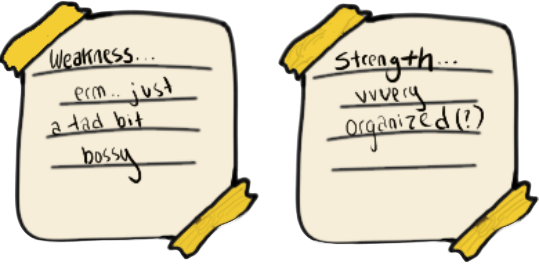 Weakness...
erm.. just
a tad bit
bossy
Strength...
vvvery
organized(?)